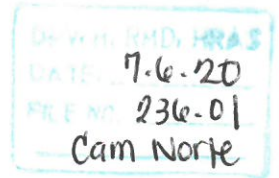 DRVCH. RMD, HRAS
DATE: 7.6.20
FILE NO. 236.01
Cam Norte